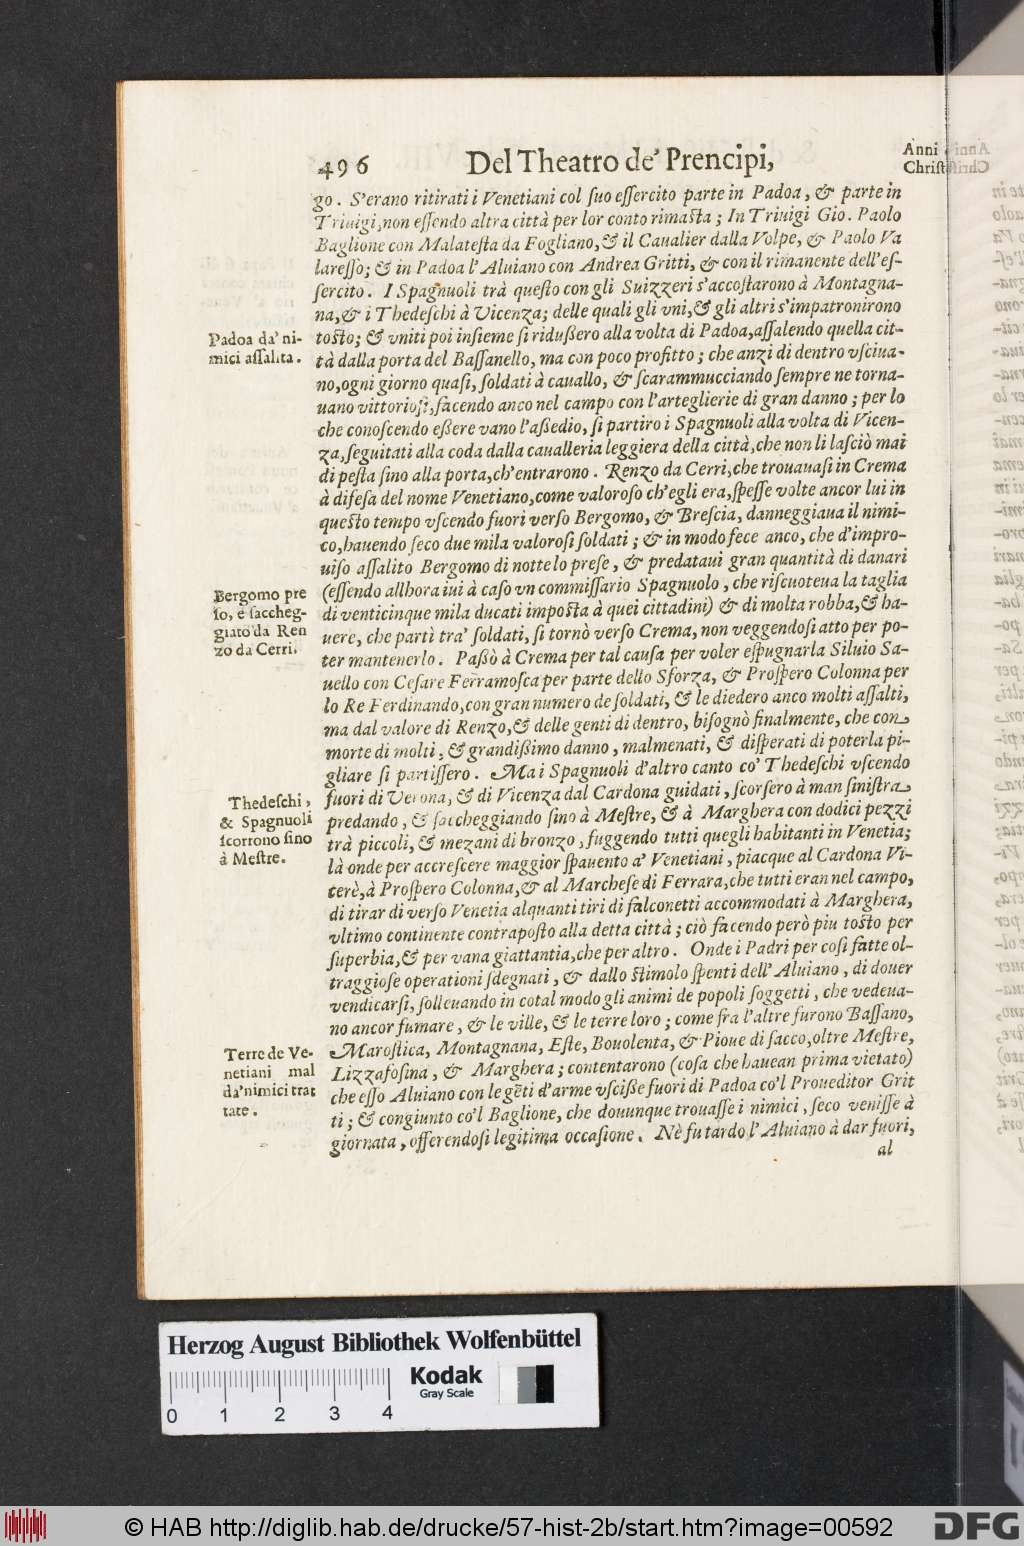 496 Del Theatro de' Prencipi,
Anni
Christi
go. S'erano ritirati i Venetiani col suo essercito parte in Padoa, & parte in
Triuigi, non essendo altra città per lor conto rimasta; In Triuigi Gio. Paolo
Baglione con Malatesta da Fogliano, & il Caualier dalla Volpe, & Paolo Va
laresso; & in Padoa l'Aluiano con Andrea Gritti, & con il rimanente dell'es-
sercito. I Spagnuoli trà questo con gli Suizzeri s'accostarono à Montagna-
na, & i Thedeschi à Vicenza; delle quali gli vni, & gli altri s'impatronirono
tosto; & vniti poi insieme si ridussero alla volta di Padoa, assalendo quella cit-
tà dalla porta del Bassanello, ma con poco profitto; che anzi di dentro vsciua-
no, ogni giorno quasi, soldati à cauallo, & scarammucciando sempre ne torna-
uano vittoriosi, facendo anco nel campo con l'arteglierie di gran danno; per lo
che conoscendo essere vano l'assedio, si partiro i Spagnuoli alla volta di Vicen-
za, seguitati alla coda dalla caualleria leggiera della città, che non li lasciò mai
di pesta sino alla porta, ch'entrarono. Renzo da Cerri, che trouauasi in Crema
à difesa del nome Venetiano, come valoroso ch'egli era, spesse volte ancor lui in
questo tempo vscendo fuori verso Bergomo, & Brescia, danneggiaua il nimi-
co, hauendo seco due mila valorosi soldati; & in modo fece anco, che d'impro-
uiso assalito Bergomo di notte lo prese, & predataui gran quantità di danari
(essendo allhora iui à caso vn commissario Spagnuolo, che riscuoteua la taglia
di venticinque mila ducati imposta à quei cittadini) & di molta robba, & ha-
uere, che partì tra' soldati, si tornò verso Crema, non veggendosi atto per po-
ter mantenerlo. Passò à Crema per tal causa per voler espugnarla Siluio Sa-
uello con Cesare Ferramosca per parte dello Sforza, & Prospero Colonna per
lo Re Ferdinando, con gran numero de soldati, & le diedero anco molti assalti,
ma dal valore di Renzo, & delle genti di dentro, bisognò finalmente, che con
morte di molti, & grandissimo danno, malmenati, & disperati di poterla pi-
gliare si partissero. Ma i Spagnuoli d'altro canto co' Thedeschi vscendo
fuori di Verona, & di Vicenza dal Cardona guidati, scorsero à man sinistra
predando, & saccheggiando sino à Mestre, & à Marghera con dodici pezzi
trà piccoli, & mezani di bronzo, fuggendo tutti quegli habitanti in Venetia;
là onde per accrescere maggior spauento a' Venetiani, piacque al Cardona Vi-
cerè, à Prospero Colonna, & al Marchese di Ferrara, che tutti eran nel campo,
di tirar di verso Venetia alquanti tiri di falconetti accommodati à Marghera,
vltimo continente contraposto alla detta città; ciò facendo però piu tosto per
superbia, & per vana giattantia, che per altro. Onde i Padri per cosi fatte ol-
traggiose operationi sdegnati, & dallo stimolo spenti dell'Aluiano, di douer
vendicarsi, solleuando in cotal modo gli animi de popoli soggetti, che vedeua-
no ancor fumare, & le ville, & le terre loro; come fra l'altre furono Bassano,
Marostica, Montagnana, Este, Bouolenta, & Pioue di sacco, oltre Mestre,
Lizzafosina, & Marghera; contentarono (cosa che hauean prima vietato)
che esso Aluiano con le gẽti d'arme vscisse fuori di Padoa co'l Proueditor Grit
ti; & congiunto co'l Baglione, che douunque trouasse i nimici, seco venisse à
giornata, offerendosi legitima occasione. Nè fu tardo l'Aluiano à dar fuori,
al
Padoa da' ni-
mici assalita.
Bergomo pre
so, e saccheg-
giato da Ren
zo da Cerri.
Thedeschi,
& Spagnuoli
scorrono sino
à Mestre.
Terre de Ve-
netiani mal
da'nimici trat
tate.
Herzog August Bibliothek Wolfenbüttel
Kodak
Gray Scale
0 1 2 3 4
© HAB http://diglib.hab.de/drucke/57-hist-2b/start.htm?image=00592
DFG